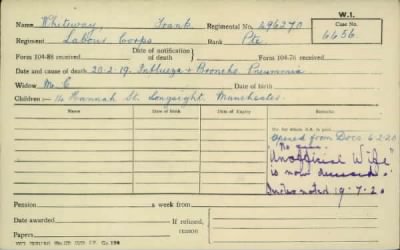 W.1.
Name Whiteway, Frank. Regimental No. 496270 Case No.
Regiment Labour Corps Rank Pte 6656
Form 104-88 received Date of notification of death Form 104-76 received
Date and cause of death 20-2-19. Influenza & Broncho Pneumonia
Widow Mrs C Date of birth
Children:- 14 Hannah St. Longsight. Manchester.
Name Date of Birth Date of Expiry No. for whom S.A. is paid.
Opened from Docs 6-2-20
"Unofficial Wife"
is now deceased.
Index noted 19-7-20
Pension a week from
Date awarded If refused, reason
Papers